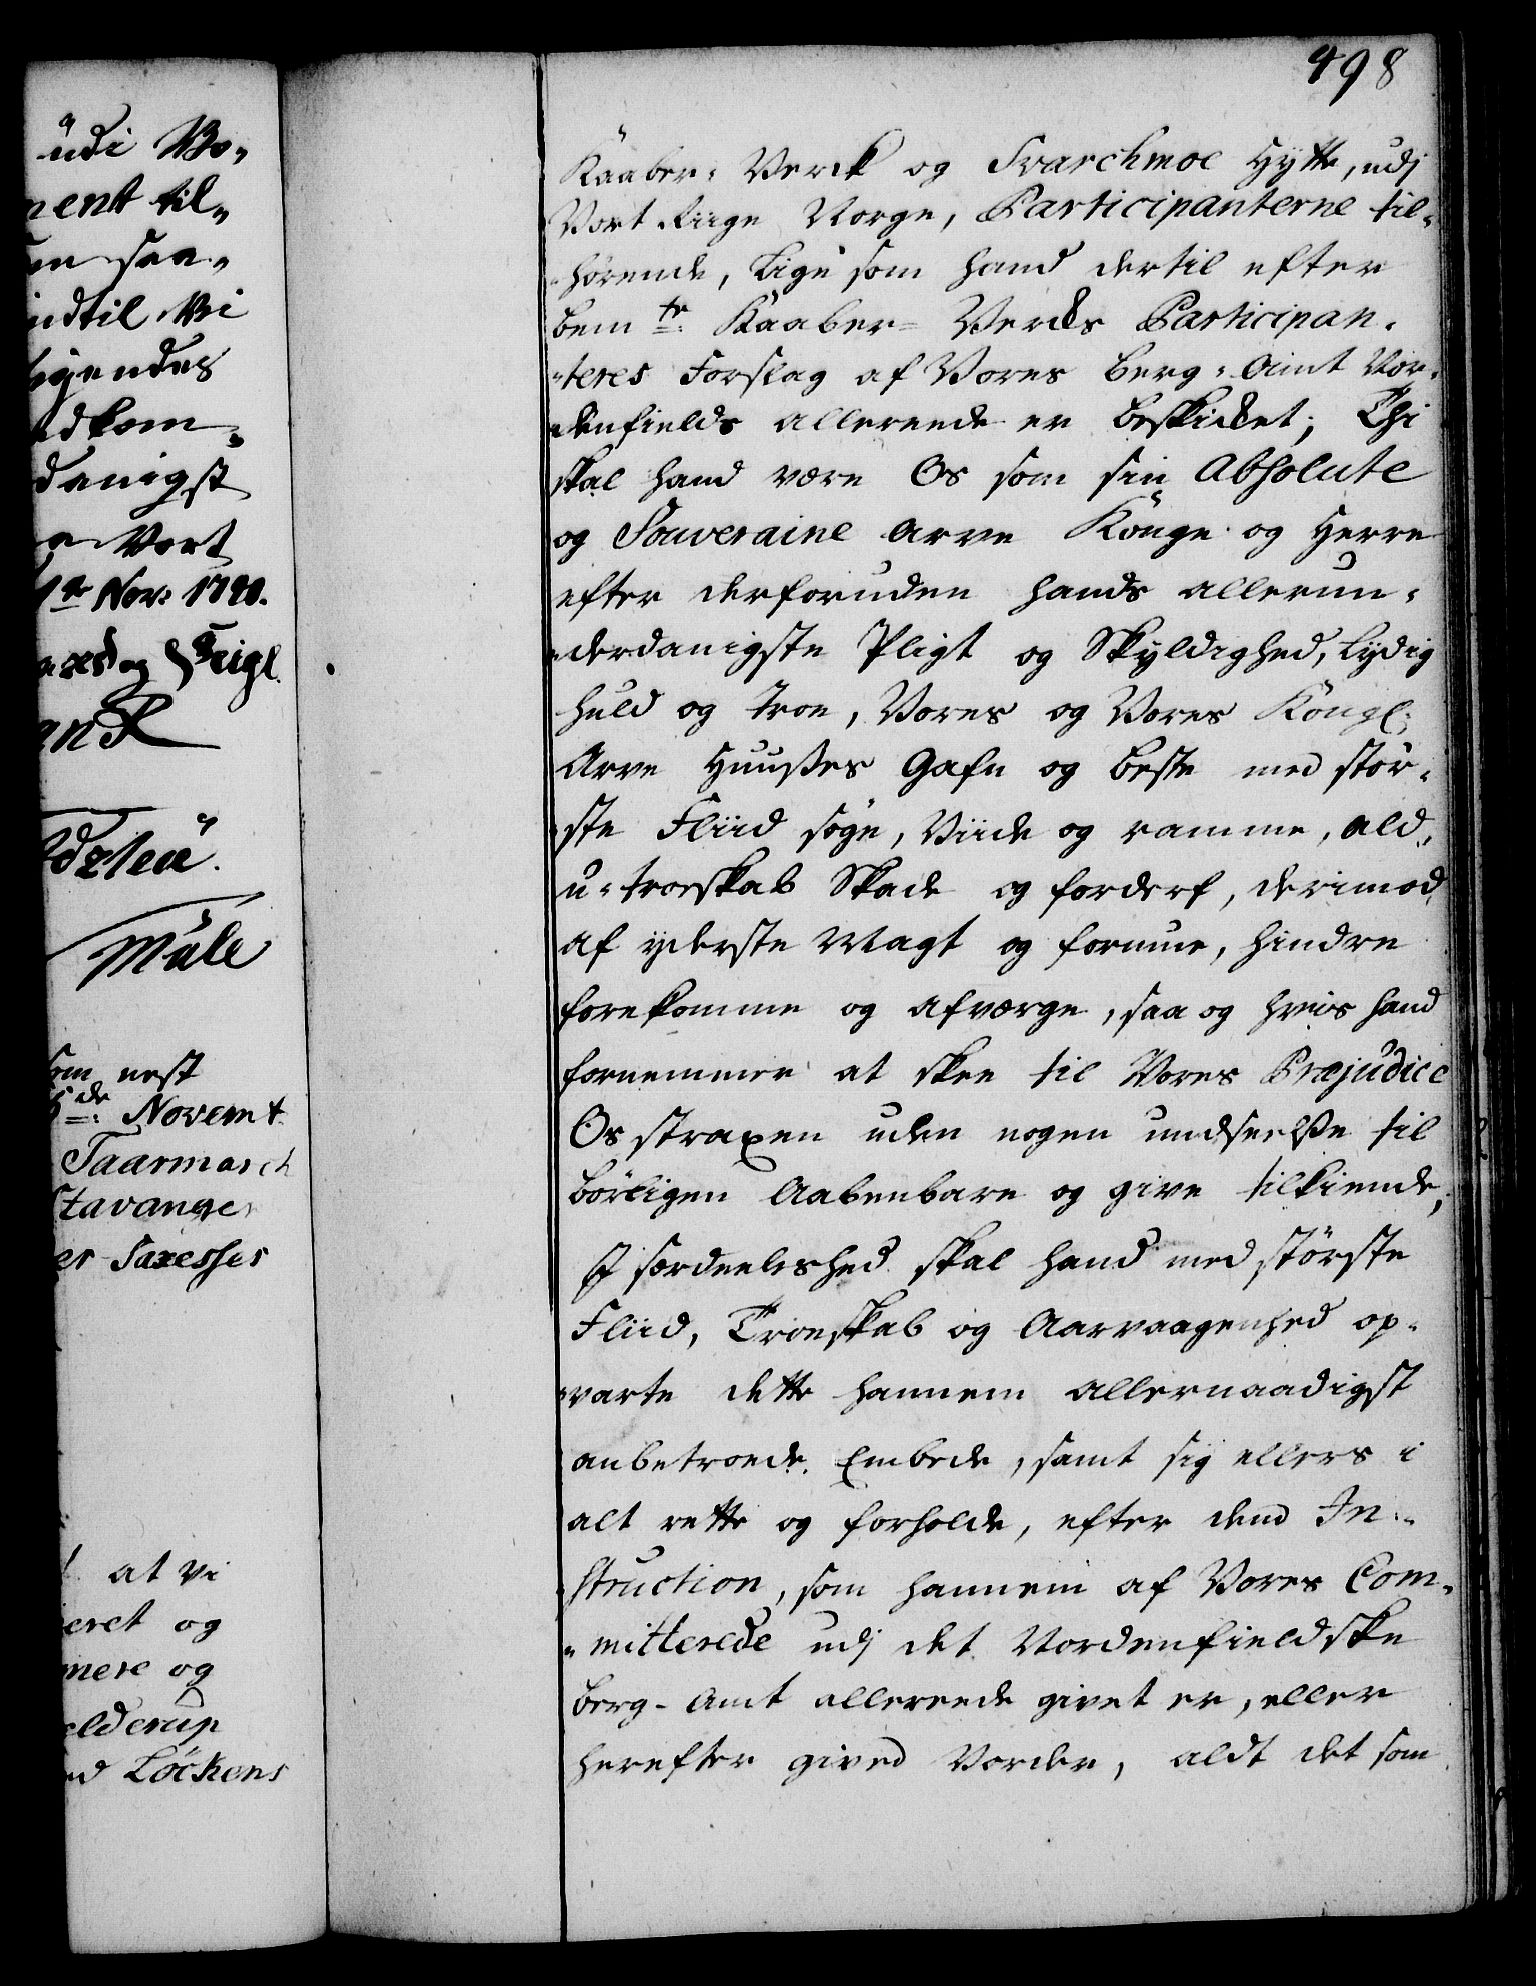 498
üdi Vo-
ment til-
saa-
indtil Vi
danigst
Vort
Nov: 1740.
Seigl.
Måle
som nest
6de: Novemt
Taarmarch
Stavanger
Saxesses
at Vi
eret og
mere og
elderup
Löckens
Kaaber- Verck og Svarchmoe Hytte, udj
Vort Riige Norge, Participanterne til-
-hörende, Lige som hand dertil efter
bemte: Kaaber- Vercks Participan-
-teres Forslag af Vores Berg-Amt Nor-
-denfields allereede er beskicket; Thi
skal hand være Os som sin Absolute
og Souveraine Arve Konge og Herre
efter derforuden hands allerun-
-derdanigste Pligt og Skyldighed, Lydig
huld og troe, Vores og Vores Kongl:
Arve Huuses Gafn og beste med stör-
-ste Fliid söge, Viide og ramme, ald,
u-troeskab Skade og forderf, derimod
af yderste Magt og formue, hindre
forekomme og afværge, saa og hvis hand
fornemmer at skee til Vores Præjudice
Os straxen uden nogen undseelse til
börligen Aabenbare og give tilkiende,
J særdeeleshed skal hand med störste
Fliid, Troeskab og Aarvaagenhed op-
-varte dette hannem allernaadigst
anbetroede Embede, samt sig ellers i
alt rette og forholde, efter dend In-
-struction, som hannem af Vores Com-
-mitterede udj det Nordenfieldske
Berg-Amt allereede givet er, eller
herefter gived Vorder, aldt det som